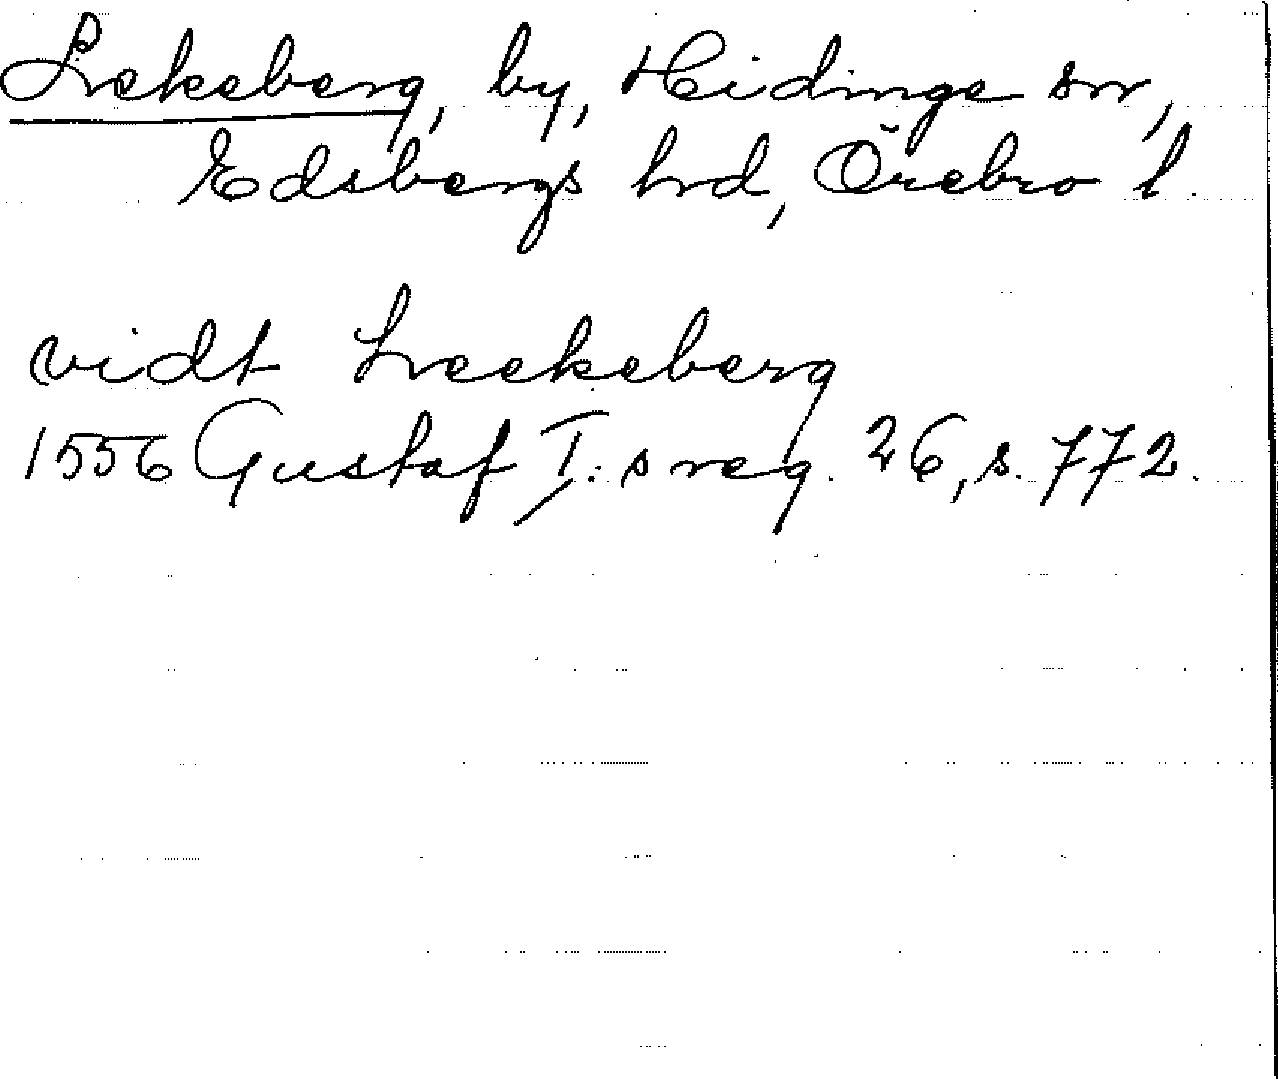 Lekeberg, by, Hidinge sn,
Edsbergs hrd, Örebro l.
vidt Leekeberg
1556 Gustaf I:s reg. 26, s. 772.